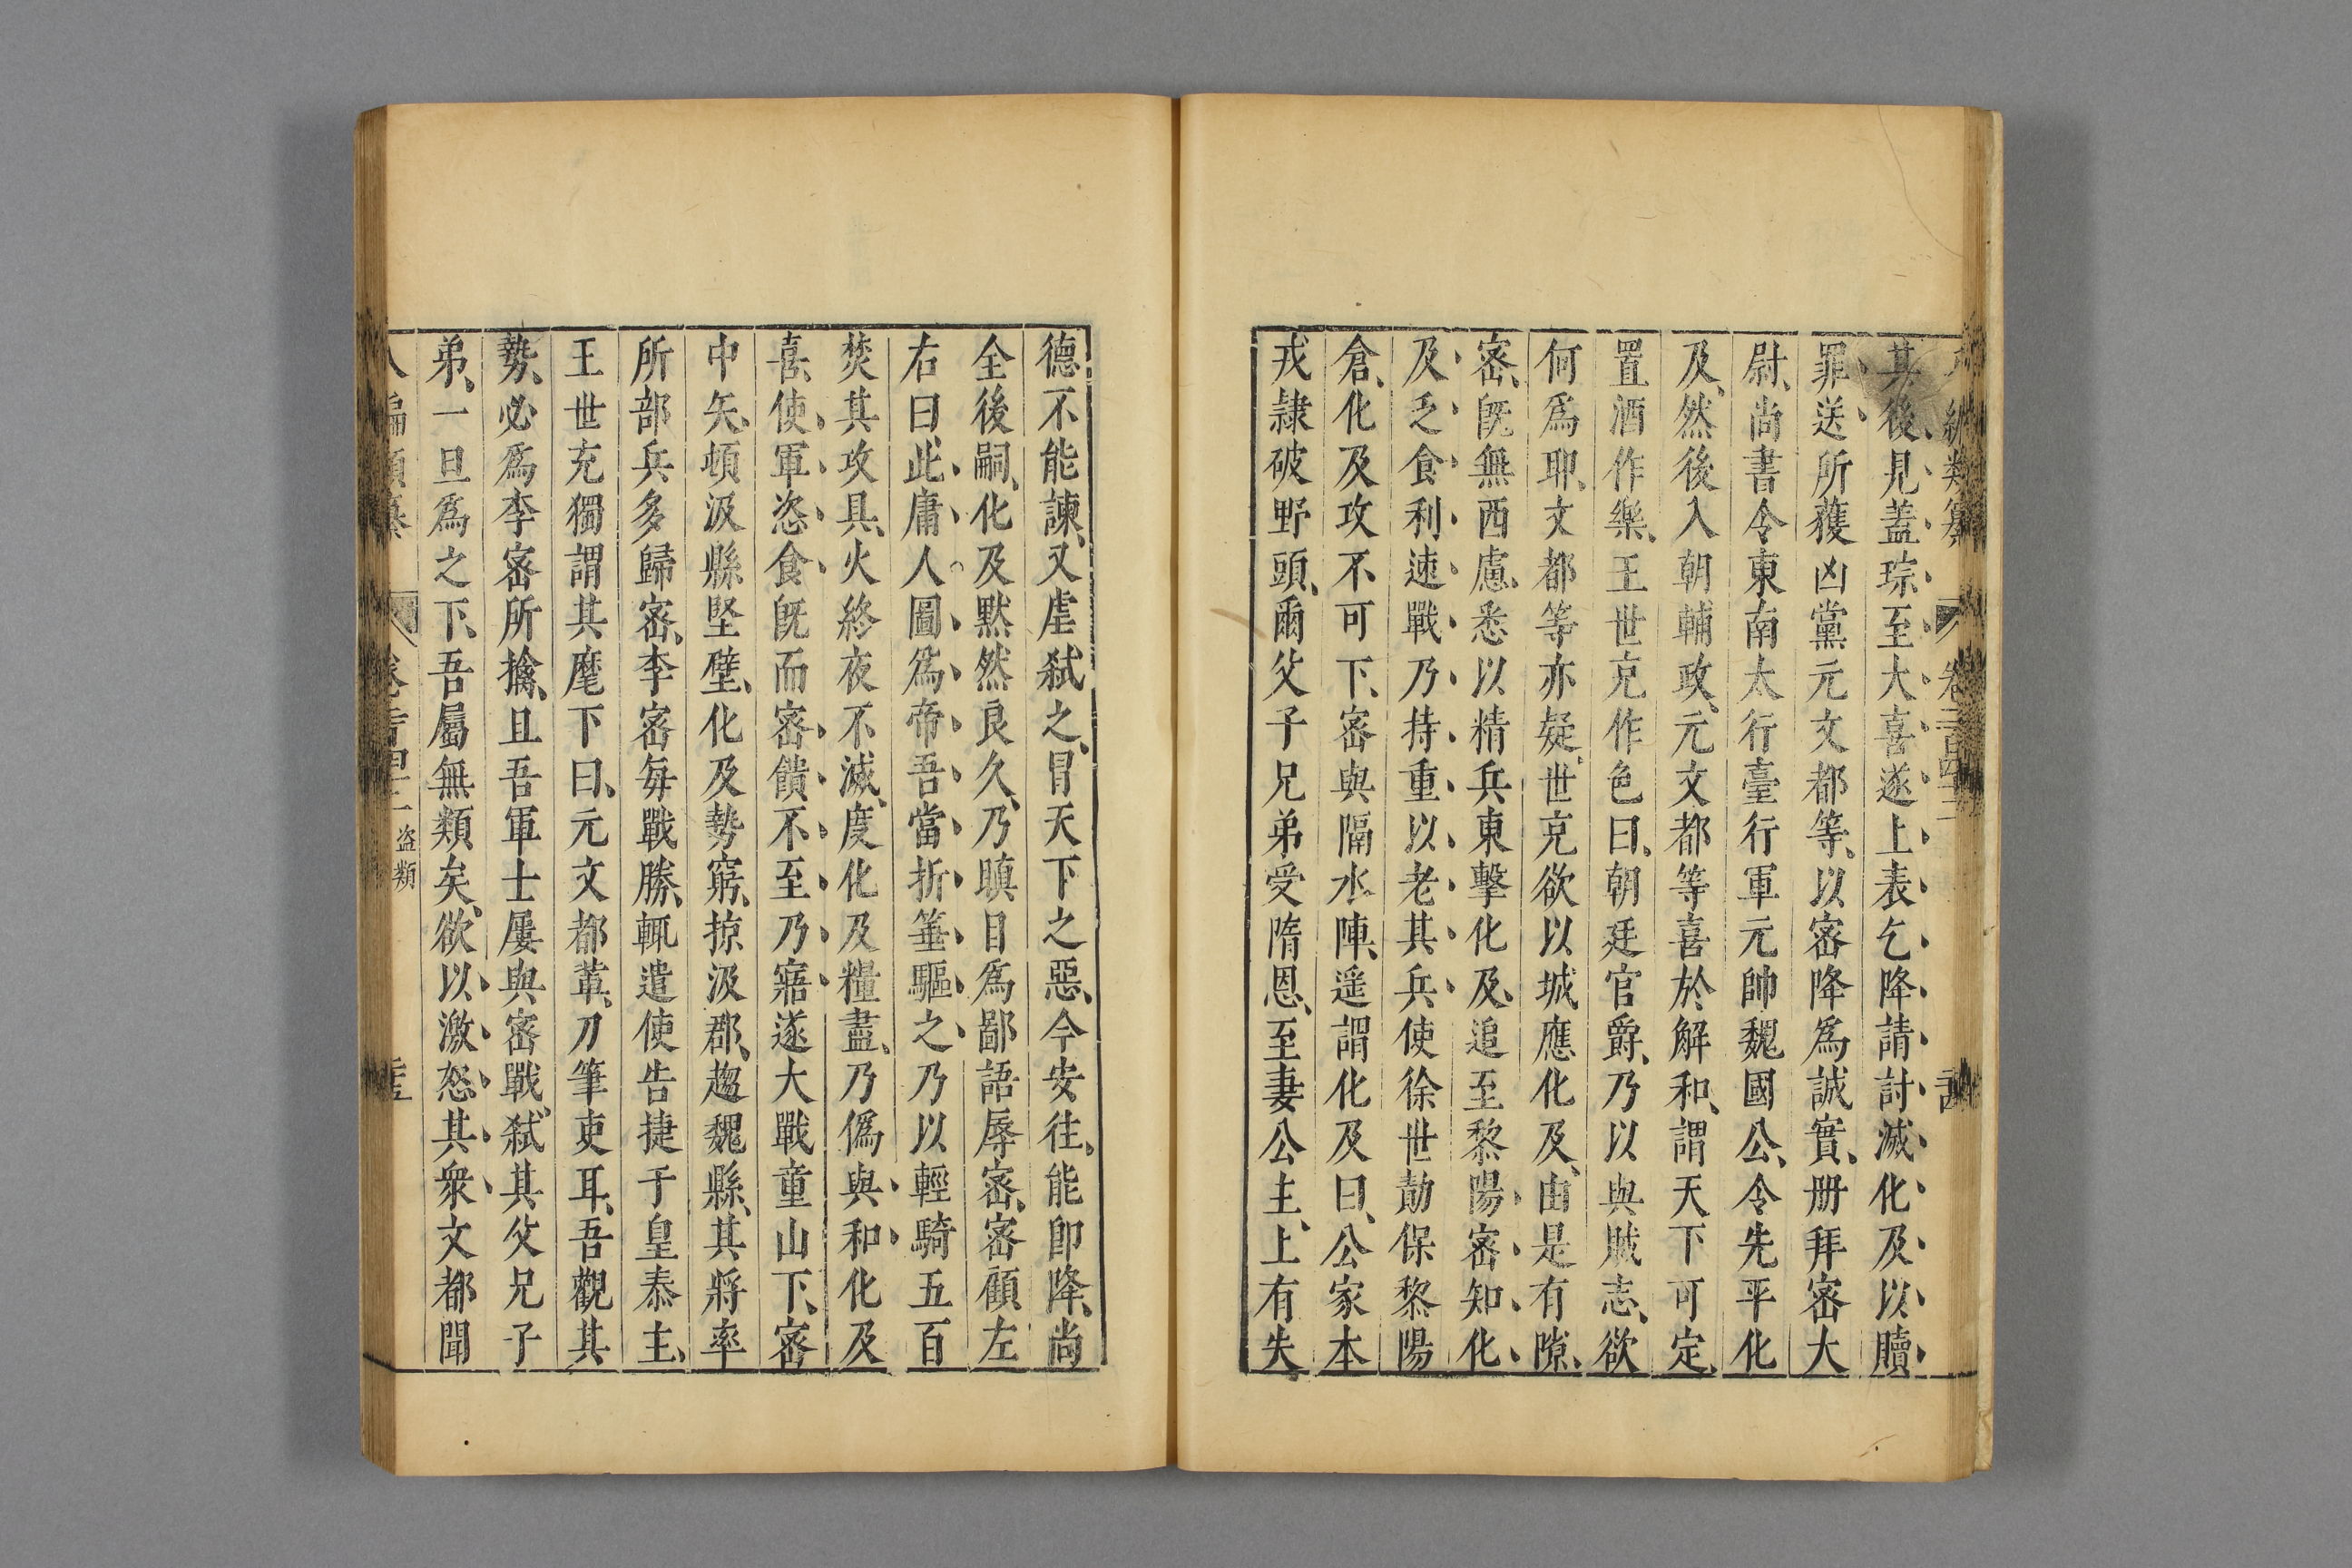 其後見蓋琮至大喜遂上表乞降請討滅化及以贖
罪送所獲凶黨元文都等以密降爲誠實册拜密大
尉尚書令東南太行臺行軍元帥魏國公令先平化
及然後入朝輔政元文都等喜於解和謂天下可定
置酒作樂王世充作色曰朝廷官爵乃以與賊志欲
何爲耶文都等亦疑世充欲以城應化及由是有隙
密旣無西慮悉以精兵東擊化及追至黎陽密知化
及乏食利速戰乃持重以老其兵使徐世勣保黎陽
倉化及攻不可下密與隔水陣遥謂化及曰公家本
戎隷破野頭爾父子兄弟受隋恩至妻公主上有失
德不能諫又虐弑之冒天下之惡今安往能即降尚
全後嗣化及黙然良久乃瞋目爲鄙語辱密密顧左
右曰此庸人圖爲帝吾當折箠驅之乃以輕騎五百
焚其攻具火終夜不滅度化及糧盡乃僞與和化及
喜使軍恣食旣而密饋不至乃寤遂大戰童山下密
中矢頓汲縣堅壁化及勢窮掠汲郡趨魏縣其將率
所部兵多歸密李密每戰勝輒遣使告捷于皇泰主
王世充獨謂其麾下曰元文都輩刀筆吏耳吾觀其
勢必爲李密所擒且吾軍士屢與密戰弑其父兄子
弟一旦爲之下吾屬無類矣欲以激怒其衆文都聞
盗類